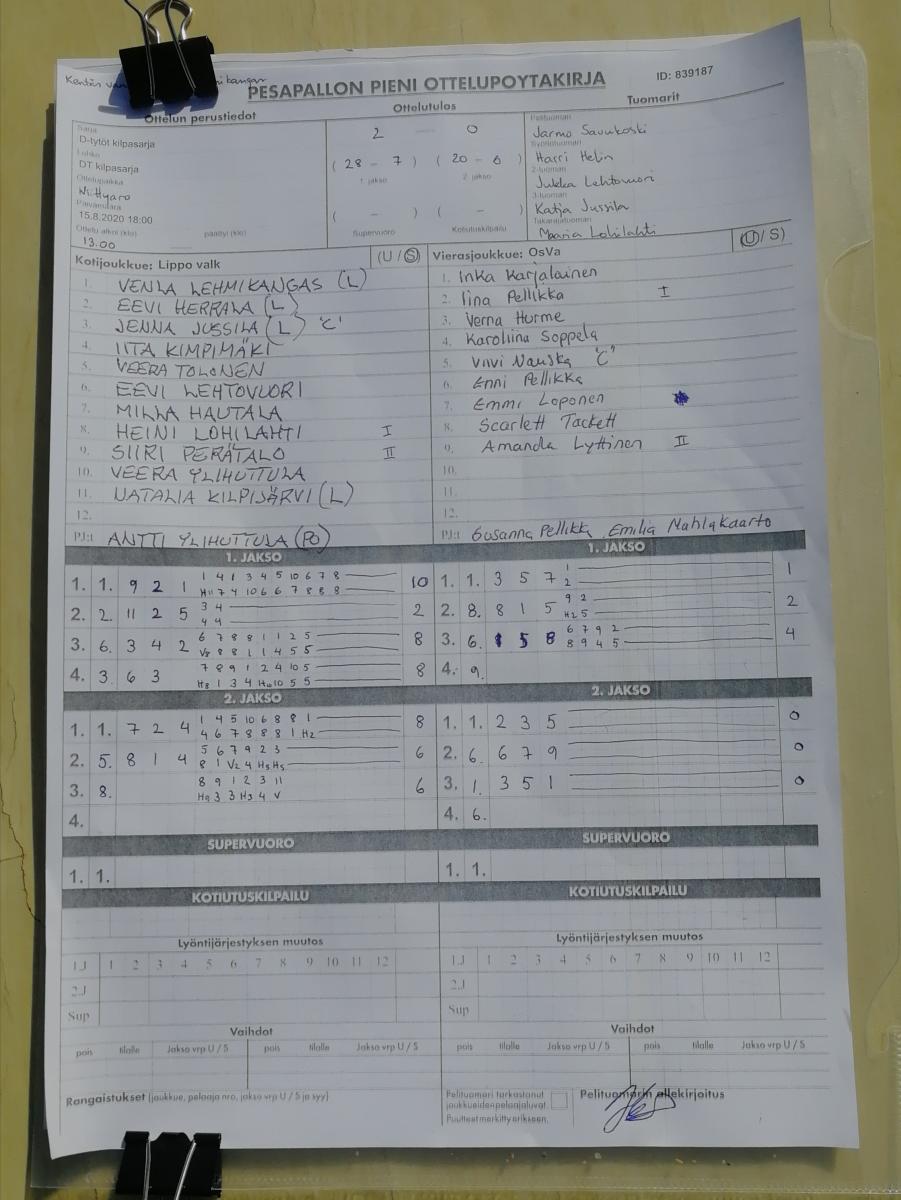 Kentän
PESÄPALLON PIENI OTTELUPÖYTÄKIRJA
ID: 839187
Ottelun perustiedot
Ottelutulos
Tuomarit
Sarja
D-tytöt kilpasarja
Lohko
DT kilpasarja
Ottelupaikka
Päivämäärä
15.8.2020 18:00
Ottelu alkoi (klo) päättyi (klo)
13.00
2 — 0
( 28 - 7 ) ( 20 - 6 )
1. jakso 2. jakso
( - ) ( - )
Supervuoro Kotiutuskilpailu
Pelituomari
Jarmo Savukoski
Syöttötuomari
Harri Helin
2-tuomari
Jukka Lehtovuori
3-tuomari
Katja Jussila
Takarajatuomari
Maaria Lohilahti
Kotijoukkue: Lippo valk (U / S)
1. VENLA LEHMIKANGAS (L)
2. EEVI HERRALA (L)
3. JENNA JUSSILA (L) 'C'
4. IITA KIMPIMÄKI
5. VEERA TOLONEN
6. EEVI LEHTOVUORI
7. MILLA HAUTALA
8. HEINI LOHILAHTI I
9. SIIRI PERÄTALO II
10. VEERA YLIHUTTULA
11. NATALIA KILPIJÄRVI (L)
12.
PJ:t ANTTI YLIHUTTULA (PO)
Vierasjoukkue: OsVa (U / S)
1. Inka Karjalainen
2. Iina Pellikka I
3. Verna Hurme
4. Karoliina Soppela
5. Viivi Nauska 'C'
6. Enni Pellikka
7. Emmi Loponen
8. Scarlett Tackett
9. Amanda Lyttinen II
10.
11.
12.
PJ:t Susanna Pellikka, Emilia Mahlakaarto
1. JAKSO
1. 1. 9 2 1 1 4 1 3 4 5 10 6 7 8 10
H11 7 4 10 6 6 7 8 8 8
2. 2. 11 2 5 3 4 2
4 4
3. 6. 3 4 2 6 7 8 8 1 1 2 5 8
V8 8 1 1 4 5 5
4. 3. 6 3 7 8 9 1 2 4 10 5 8
H8 1 3 4 H10 10 5 5
1. JAKSO
1. 1. 3 5 7 1 1
2
2. 8. 8 1 5 9 2 2
H2 5
3. 6. 1 5 8 6 7 9 2 4
8 9 4 5
4. 9.
2. JAKSO
1. 1. 7 2 4 1 4 5 10 6 8 8 1 8
4 6 7 8 8 8 1 H2
2. 5. 8 1 4 5 6 7 9 2 3 6
8 1 V2 4 H3 H5
3. 8. 8 9 1 2 3 11 6
H9 3 3 H3 4 V
4.
2. JAKSO
1. 1. 2 3 5 0
2. 6. 6 7 9 0
3. 1. 3 5 1 0
4. 6.
SUPERVUORO
1. 1.
SUPERVUORO
1. 1.
KOTIUTUSKILPAILU
KOTIUTUSKILPAILU
Lyöntijärjestyksen muutos
1.J 1 2 3 4 5 6 7 8 9 10 11 12
2.J
Sup
Lyöntijärjestyksen muutos
1.J 1 2 3 4 5 6 7 8 9 10 11 12
2.J
Sup
Vaihdot
pois tilalle Jakso vrp U / S pois tilalle Jakso vrp U / S
Vaihdot
pois tilalle Jakso vrp U / S pois tilalle Jakso vrp U / S
Rangaistukset (joukkue, pelaaja nro, jakso vrp U / S ja syy)
Pelituomari tarkastanut
joukkueiden pelaajaluvat.
Puutteet merkitty erikseen.
Pelituomarin allekirjoitus